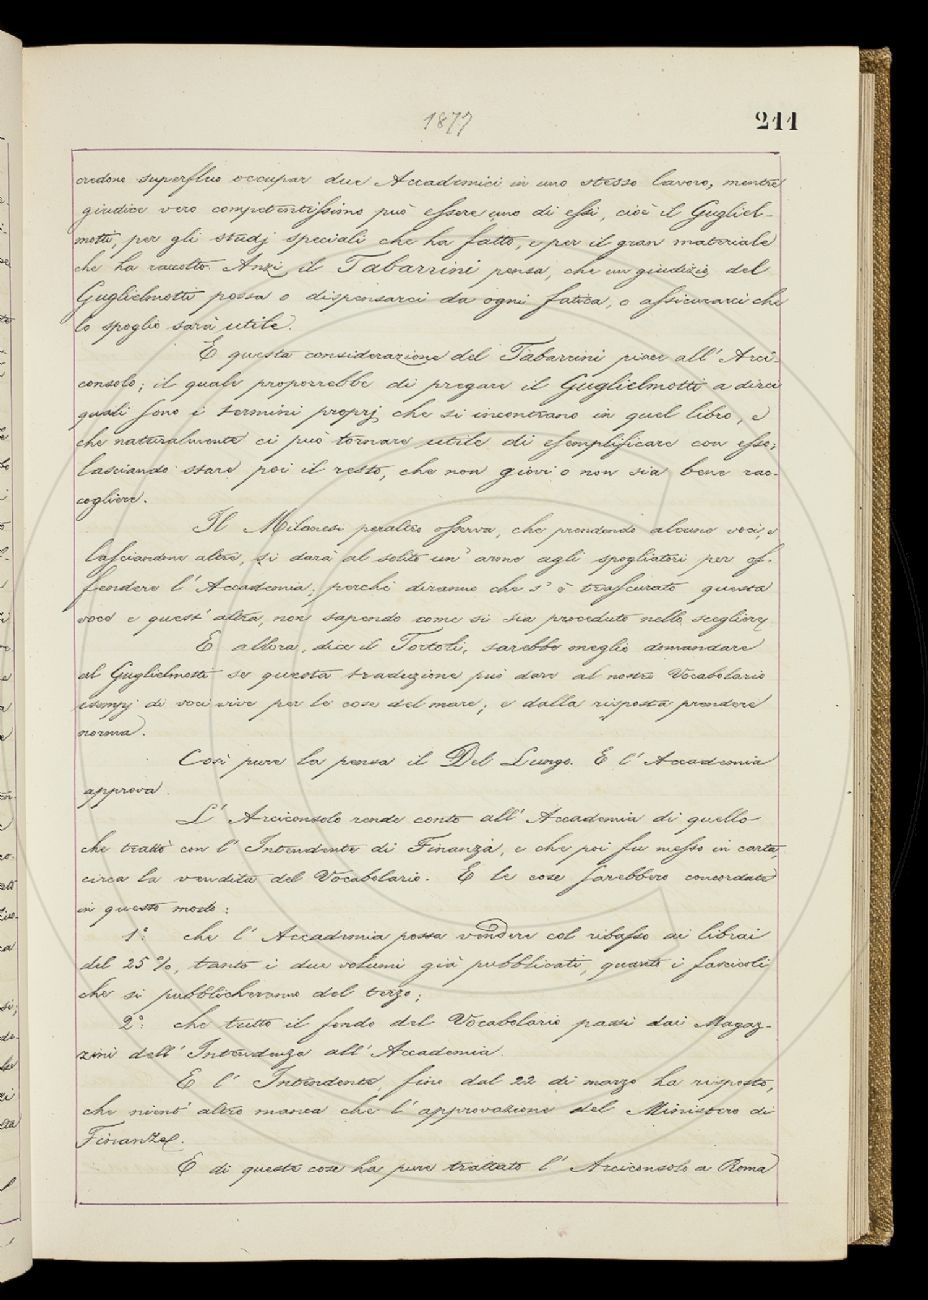 1877
211
credono superfluo occupar due Accademici in uno stesso lavoro, mentre
giudice vero competentissimo può essere uno di essi, cioè il Gugliel-
motti, per gli studj speciali che ha fatto, e per il gran materiale
che ha raccolto. Anzi il Tabarrini pensa, che un giudizio del
Guglielmotti possa o dispensarci da ogni fatica, o assicurarci che
lo spoglio sarà utile.
E questa considerazione del Tabarrini piace all' Arci-
consolo; il quale proporrebbe di pregare il Guglielmotti a dirci
quali sono i termini proprj che si incontrano in quel libro, e
che naturalmente ci può tornare utile di esemplificare con esso;
lasciando stare poi il resto, che non giovi o non sia bene rac-
cogliere.
Il Milanesi peraltro osserva, che prendendo alcune voci, e
lasciandone altre, si darà al solito un' arme agli spogliatori per of-
fendere l' Accademia; perché diranno che s' è trascurato questa
voce e quest' altra, non sapendo come si sia proceduto nello scegliere.
E allora, dice il Tortoli, sarebbe meglio domandare
al Guglielmotti se questa traduzione può dare al nostro Vocabolario
esempj di voci vive per le cose del mare; e dalla risposta prendere
norma.
Così pure la pensa il Del Lungo. E l' Accademia
approva.
L' Arciconsolo rende conto all' Accademia di quello
che trattò con l' Intendente di Finanza, e che poi fu messo in carta,
circa la vendita del Vocabolario. E le cose sarebbero concordate
in questo modo:
1.° che l' Accademia possa vendere col ribasso ai librai
del 25 %, tanto i due volumi già pubblicati, quanto i fascicoli
che si pubblicheranno del terzo;
2.° che tutto il fondo del Vocabolario passi dai Magaz-
zini dell' Intendenza all' Accademia.
E l' Intendente, fino dal 22 di marzo ha risposto,
che nient' altro manca che l' approvazione del Ministero di
Finanze.
E di questa cosa ha pure trattato l' Arciconsolo a Roma